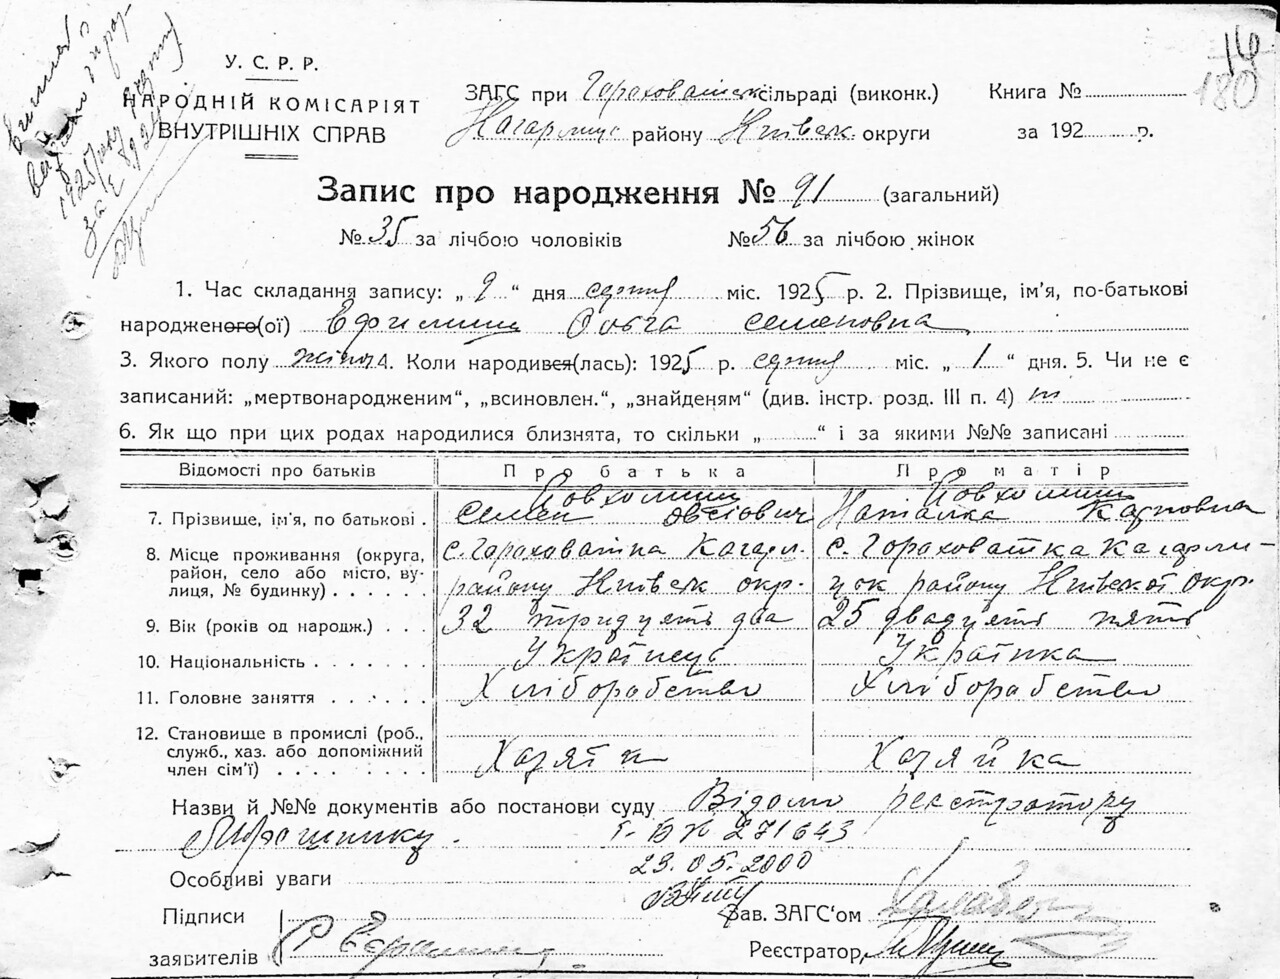 16
180
У. С. Р. Р.
НАРОДНІЙ КОМІСАРІЯТ
ВНУТРІШНІХ СПРАВ
ЗАГС при Гороховатск сільраді (виконк.)
Кагарлиц. району Київськ округи
Книга №
за 192 р.
Запис про народження № 91 (загальний)
№ 35 за лічбою чоловіків № 56 за лічбою жінок
1. Час складання запису: „ 9 “ дня серпня міс. 1925 р. 2. Прізвище, ім'я, по-батькові
народженого(ої) Ольга Семеновна
3. Якого полу жіноч 4. Коли народився(лась): 1925 р. серпня міс. „ 1 “ дня. 5. Чи не є
записаний: „мертвонародженим“, „всиновлен.“, „знайденям“ (див. інстр. розд. III п. 4) ні
6. Як що при цих родах народилися близнята, то скільки „ “ і за якими №№ записані
Відомості про батьків Про батька Про матір
Йовхомищ Йовхомищ
7. Прізвище, ім'я, по батькові . Семен Овсійович Наталка Карповна
8. Місце проживання (округа, с. Гороховатка Кагарл. с. Гороховатка Кагарли-
район, село або місто, ву- району Київськ окр. цок району Київської окр.
лиця, № будинку) . . . . . .
9. Вік (років од народж.) . . . 32 тридцеть два 25 двадцеть пять
10. Національність . . . . . . . Українець Українка
11. Головне заняття . . . . . . Хліборобство Хліборобство
12. Становище в промислі (роб.,
служб., хаз. або допоміжний Хазяїн Хазяйка
член сім'ї) . . . . . . . . .
Назви й №№ документів або постанови суду Відомо реєстратору
І-БК 271643
29.05.2000
Особливі уваги
Підписи
заявителів
Зав. ЗАГС'ом
Реєстратор